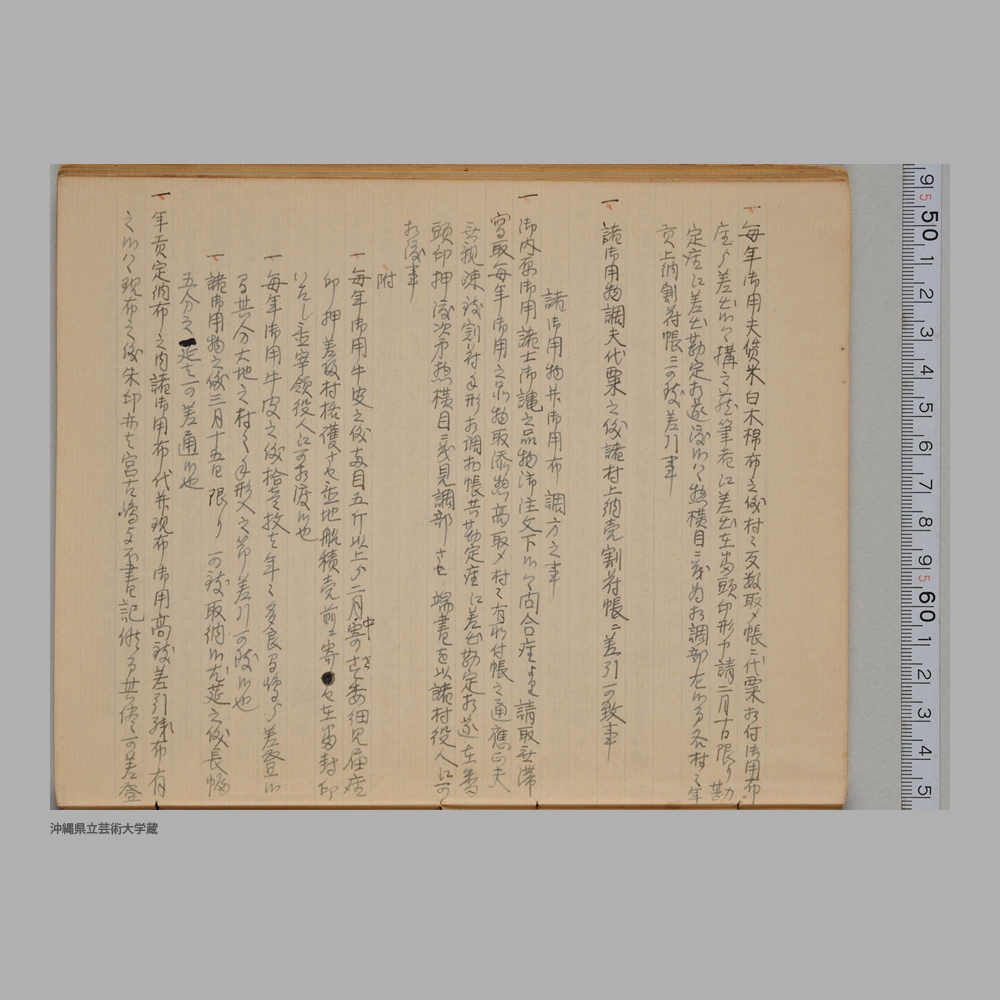 一 毎年御用夫賃米白木棉布之儀村々反数取〆帳ニ代粟お付御用布
座ゟ差出候ハヽ構之座筆者江差出在番頭印形申請二月十日限り勘
定座江差出勘定お遂済候ハヽ惣横目ニ而為お調部左候而各村々年
貢上納割符帳ニ可致差引事
一 諸御用物調夫代粟之儀諸村上納売割符帳ニ差引可致事
諸御用物并御用布調方之事
一 御内原御用諸士御誂之品物御注文下候ハヽ問合座ゟ請取無滞
写取毎年御用之品物取添惣高取〆村々有払付帳之通應正夫
無親疎致割符手形お調払帳共勘定座江差出勘定お遂在番
頭印押済次第惣横目ニ而見調部させ端書を以諸村役人江可
お渡事
附
一 毎年御用牛皮之儀斤目五斤以上ゟ二月中委細見届座
印押差返村格護させ置地船積荷前ニ寄せ在番封印
いたし置宰領役人江可お渡候也
一 毎年御用牛皮之儀拾壱枚を年々多良間嶋ゟ差登候
間其分大地之村々手形入之節差引可致候也
一 諸御用物之儀三月十五日限り可致取納候尤莚之儀長幅
五分之延を可差通候也
一 年貢定納布之内諸御用布代并現布御用高致差引残布有
之候ハヽ現布之儀朱印亦者宮古嶋与不書記候間其儘ニ可差登
9
5
50
1
2
3
4
5
6
7
8
9
5
60
1
2
3
4
5
沖縄県立芸術大学蔵